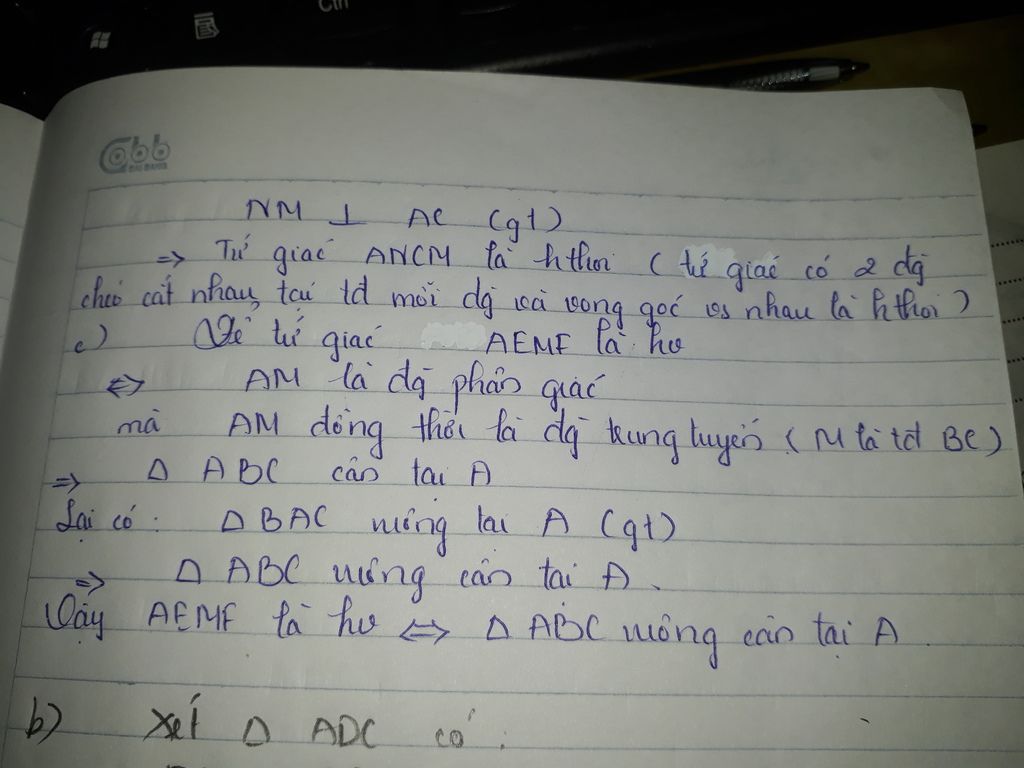 Ctrl
Cabb
NM ⊥ AC (gt)
=> Tứ giác ANCM là hthoi ( tứ giác có 2 đg
chéo cắt nhau tại tđ mỗi đg và vuông góc vs nhau là hthoi )
c) Để tứ giác AEMF là hv
<=> AM là đg phân giác
mà AM đồng thời là đg trung tuyến ( M là tđ BC )
=> Δ ABC cân tại A
Lại có : Δ BAC vuông tại A (gt)
=> Δ ABC vuông cân tại A .
Vậy AEMF là hv <=> Δ ABC vuông cân tại A .
b) Xét Δ ADC có :